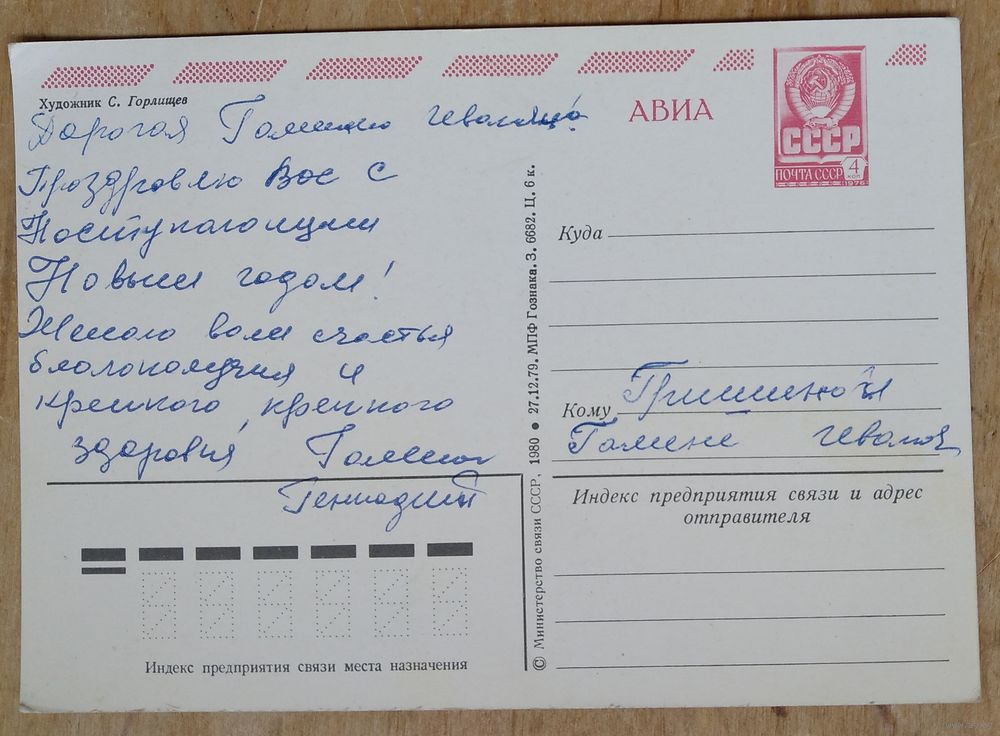 Художник С. Горлищев
Дорогая Галина Ивановна!
Поздровлю Вас с
Поступающим
Новым годом!
Желаю вам счастья
благополучия и
крепкого, крепкого
здоровья Галина
Геннадий
АВИА
СССР
ПОЧТА СССР 4 КОП
1976
Куда
Кому Гришиной
Галине Иванов
Индекс предприятия связи и адрес
отправителя
Индекс предприятия связи места назначения
© Министерство связи СССР. 1980 ● 27.12.79. МПФ Гознака. З. 6682. Ц. 6 к.